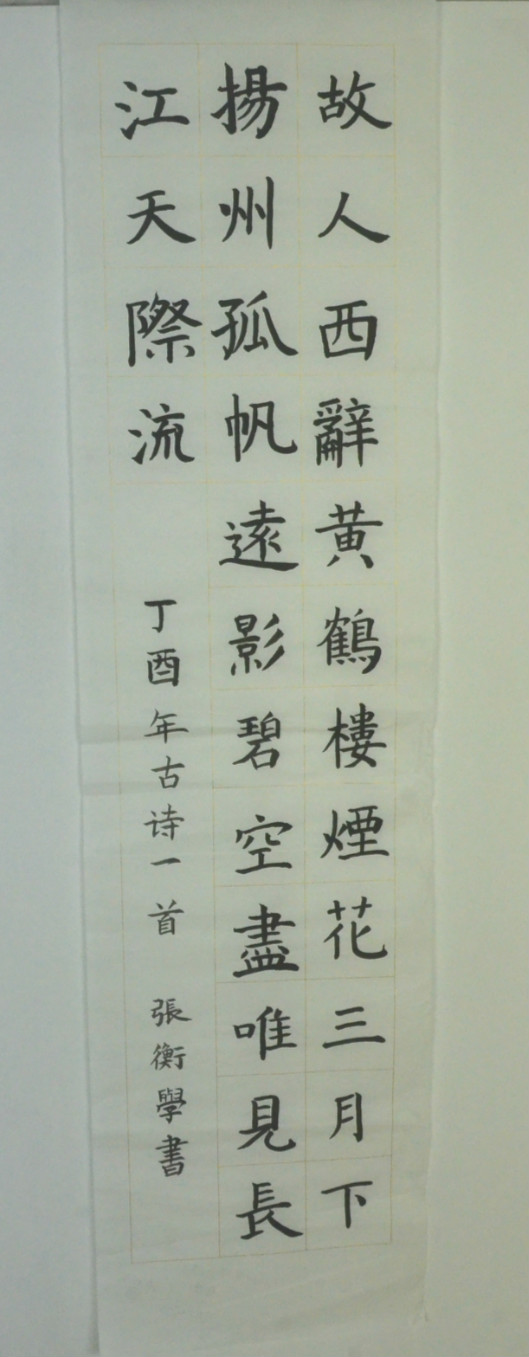 故人西辭黃鶴樓煙花三月下
揚州孤帆遠影碧空盡唯見長
江天際流
丁酉年古诗一首 張衡學書